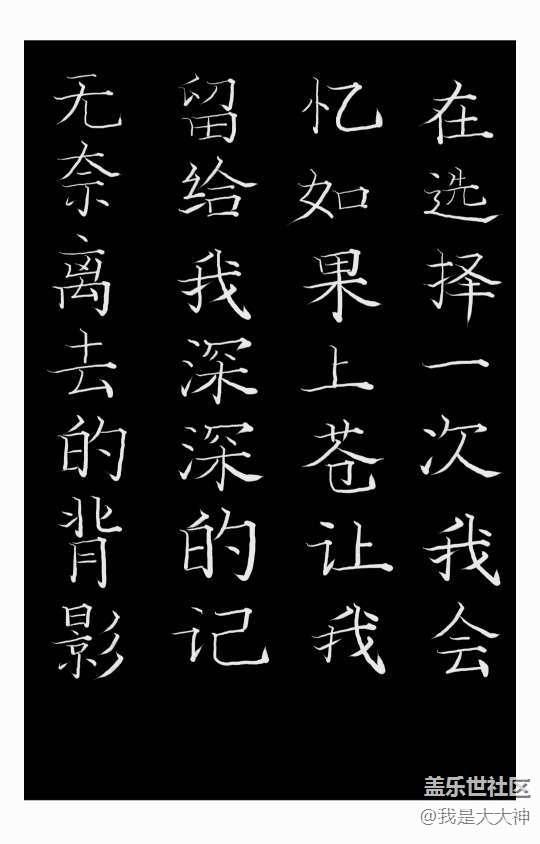 无奈离去的背影
留给我深深的记
忆如果上苍让我
在选择一次我会
盖乐世社区
@我是大大神